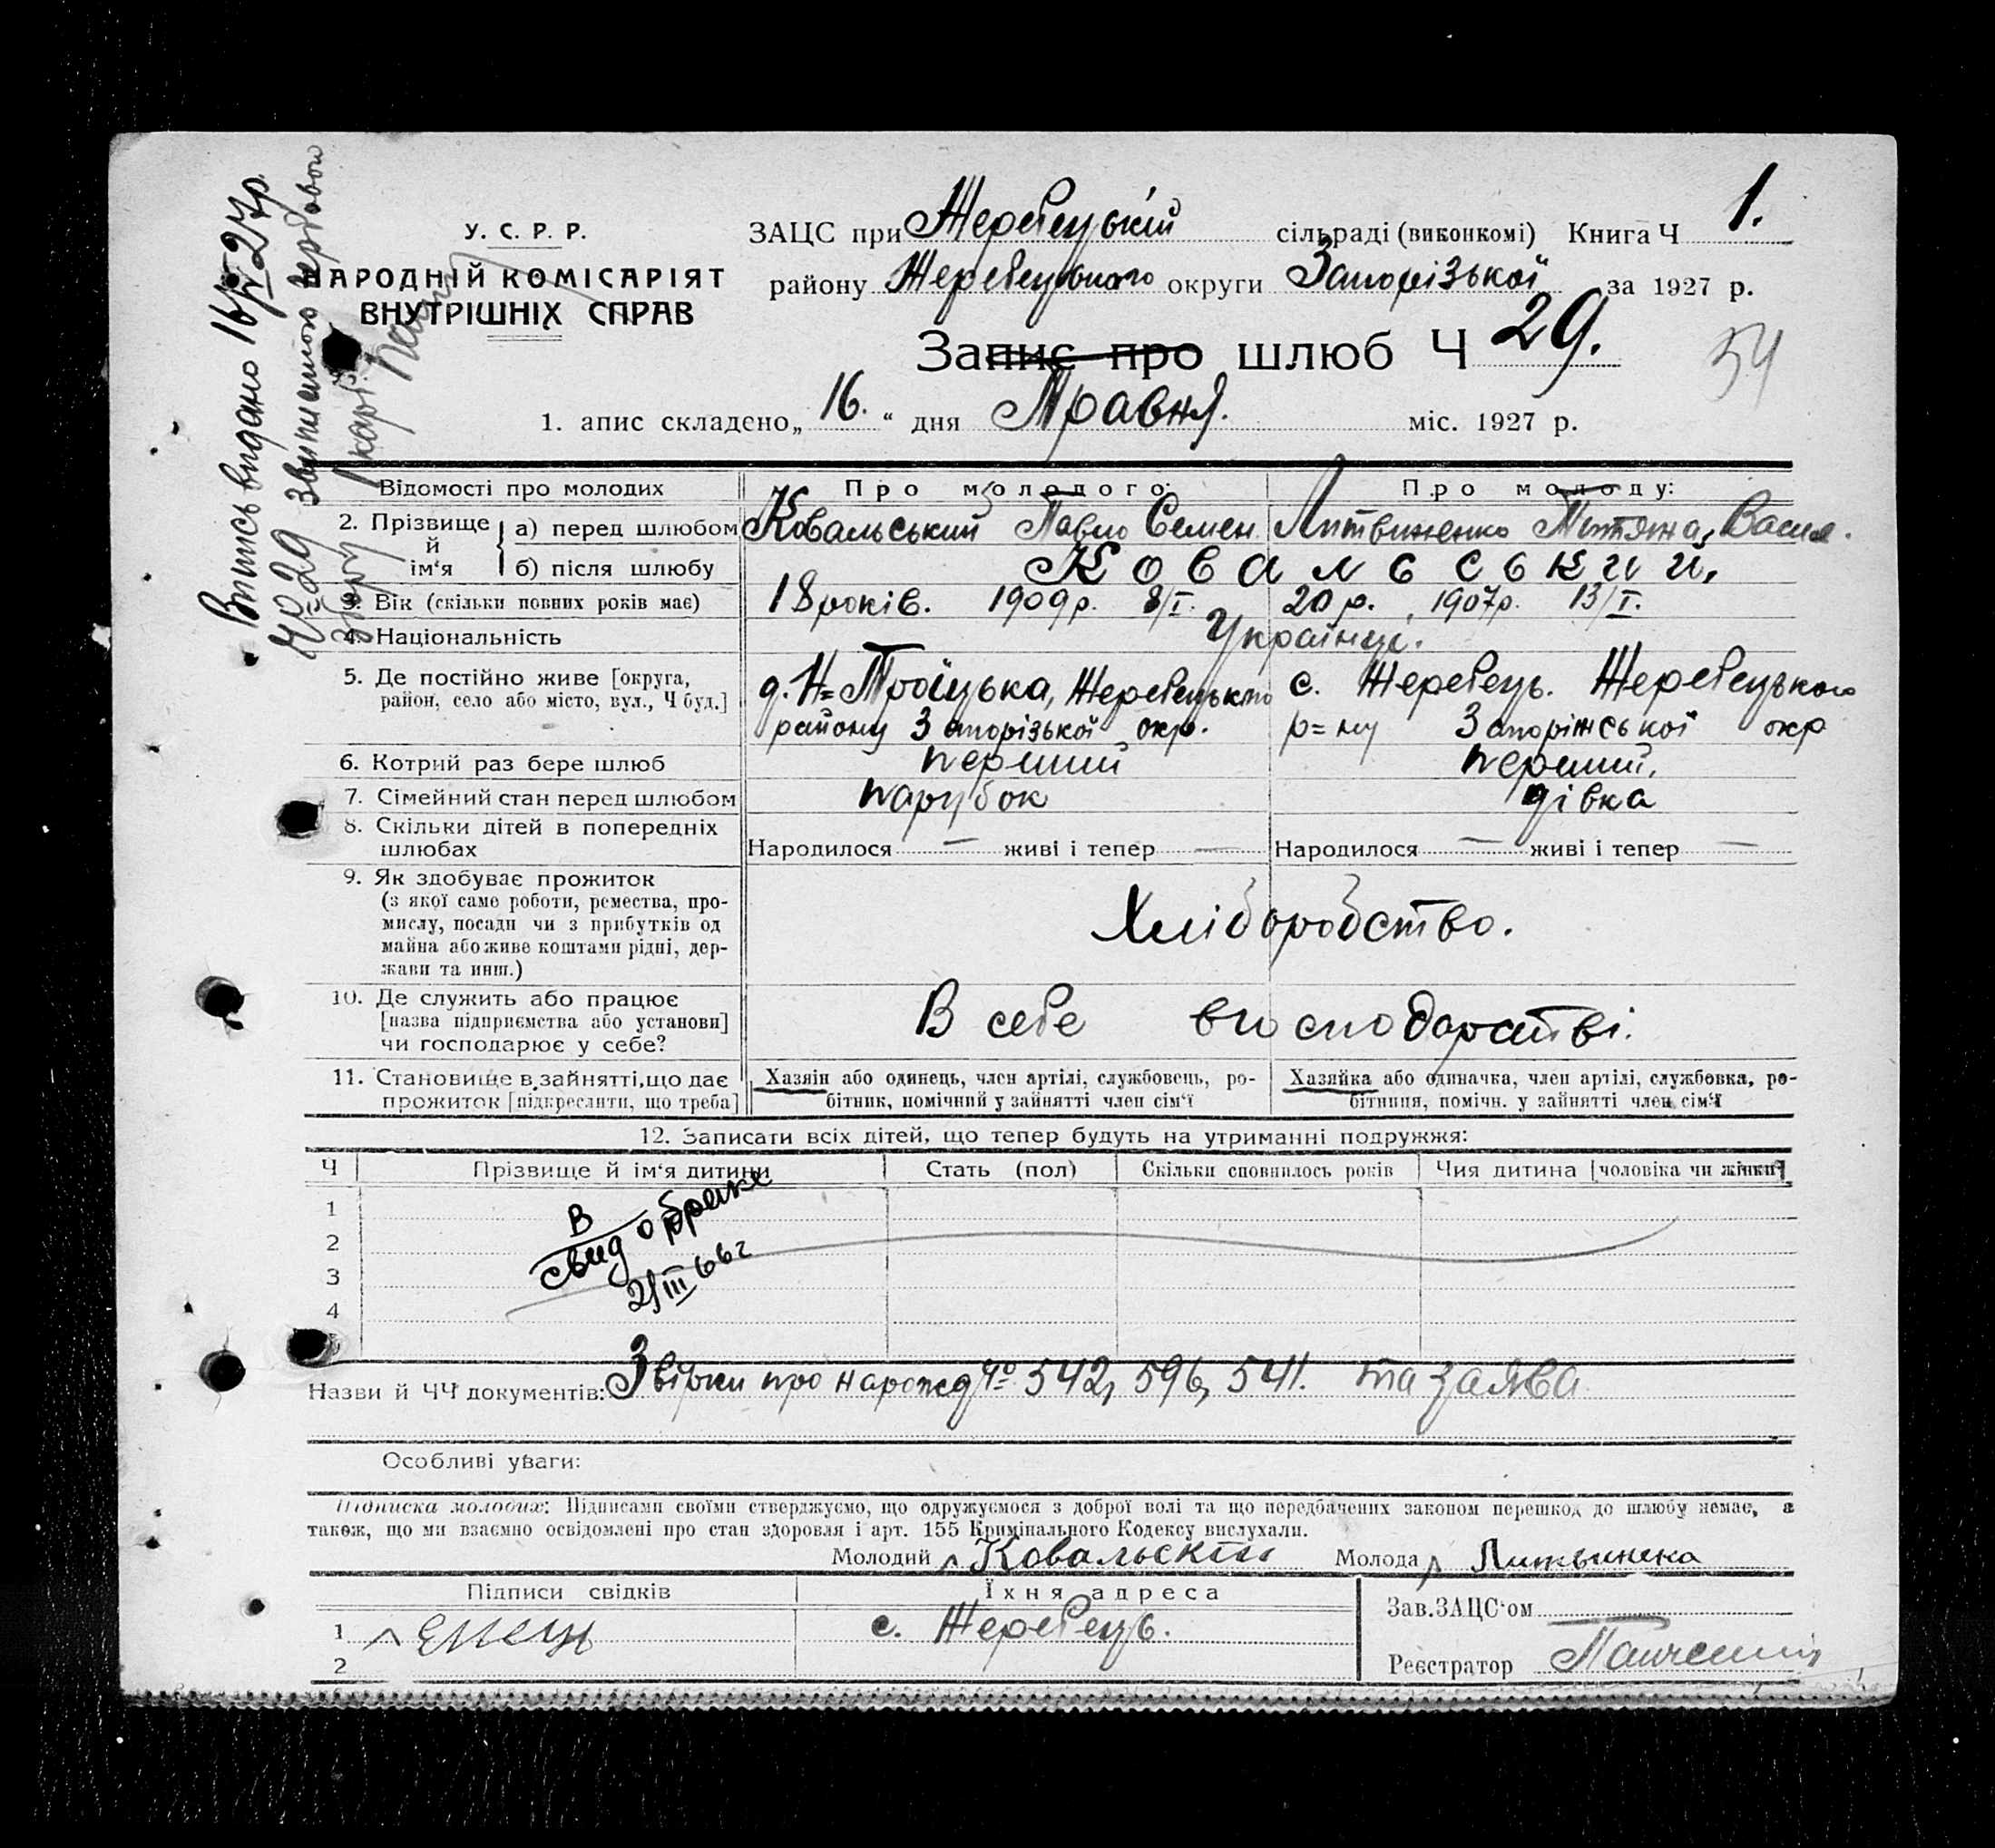 Випись видано 16/V 27р.
Ч° 29
У. С. Р. Р.
НАРОДНІЙ КОМІСАРІЯТ
ВНУТРІШНІХ СПРАВ
ЗАЦС при Жеребецькій сільраді (виконкомі) Книга Ч 1.
району Жеребецького округи Запорізької за 1927 р.
Запис про шлюб Ч 29.
54
1. апис складено „ 16. “ дня Травня. міс. 1927 р.
Відомості про молодих Про молодого: Про молоду:
2. Прізвище й ім‘я { а) перед шлюбом Ковальський Павло Семен Литвиненко Тетяна Васил.
б) після шлюбу Ковальський.
3. Вік (скільки повних років має) 18 років. 1909р. 8/I. 20 р. 1907р. 13/I.
4. Національність Українці.
5. Де постійно живе [округа, район, село або місто, вул., Ч буд.] д. Н=Троїцька, Жеребецького с. Жеребець. Жеребецького
району Запорізької окр. р=ну Запоріжської окр
6. Котрий раз бере шлюб перший перший.
7. Сімейний стан перед шлюбом парубок дівка
8. Скільки дітей в попередніх шлюбах Народилося — живі і тепер — Народилося — живі і тепер —
9. Як здобуває прожиток
(з якої саме роботи, ремества, про-
мислу, посади чи з прибутків од
майна або живе коштами рідні, дер-
жави та инш.)
Хліборобство.
10. Де служить або працює
[назва підприємства або установи]
чи господарює у себе?
В себе в господарстві.
11. Становище в зайнятті, що дає
прожиток [підкреслити, що треба]
Хазяін або одинець, член артілі, службовець, ро-
бітник, помічний у зайнятті член сім‘ї
Хазяйка або одиначка, член артілі, службовка, ро-
бітниця, помічн. у зайнятті член сім‘ї
12. Записати всіх дітей, що тепер будуть на утриманні подружжя:
Ч Прізвище й ім‘я дитини Стать (пол) Скільки сповнилось років Чия дитина [чоловіка чи жінки]
1
2
3
4
5
В
свид о браке
21/III 66 г
Назви й ЧЧ документів: Звірки про нарожд Ч° 542, 596, 541. та заява
Особливі уваги:
Підписка молодих: Підписами своїми стверджуємо, що одружуємося з доброї волі та що передбачених законом перешкод до шлюбу немає, а
також, що ми взаємно освідомлені про стан здоровля і арт. 155 Кримінального Кодексу вислухали.
Молодий Ковальский Молода Литвинека
Підписи свідків Їхня адреса
1 с. Жеребець.
2
Зав. ЗАЦС‘ом
Реєстратор